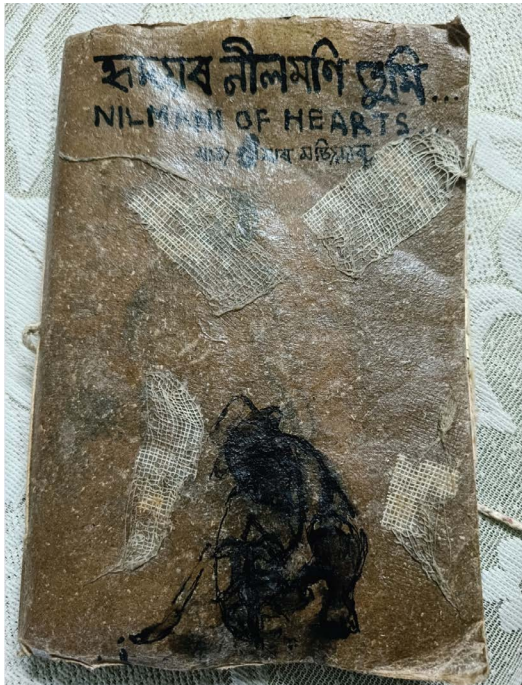 হৃদয়ৰ নীলমণি তুমি...
NILMANI OF HEARTS....